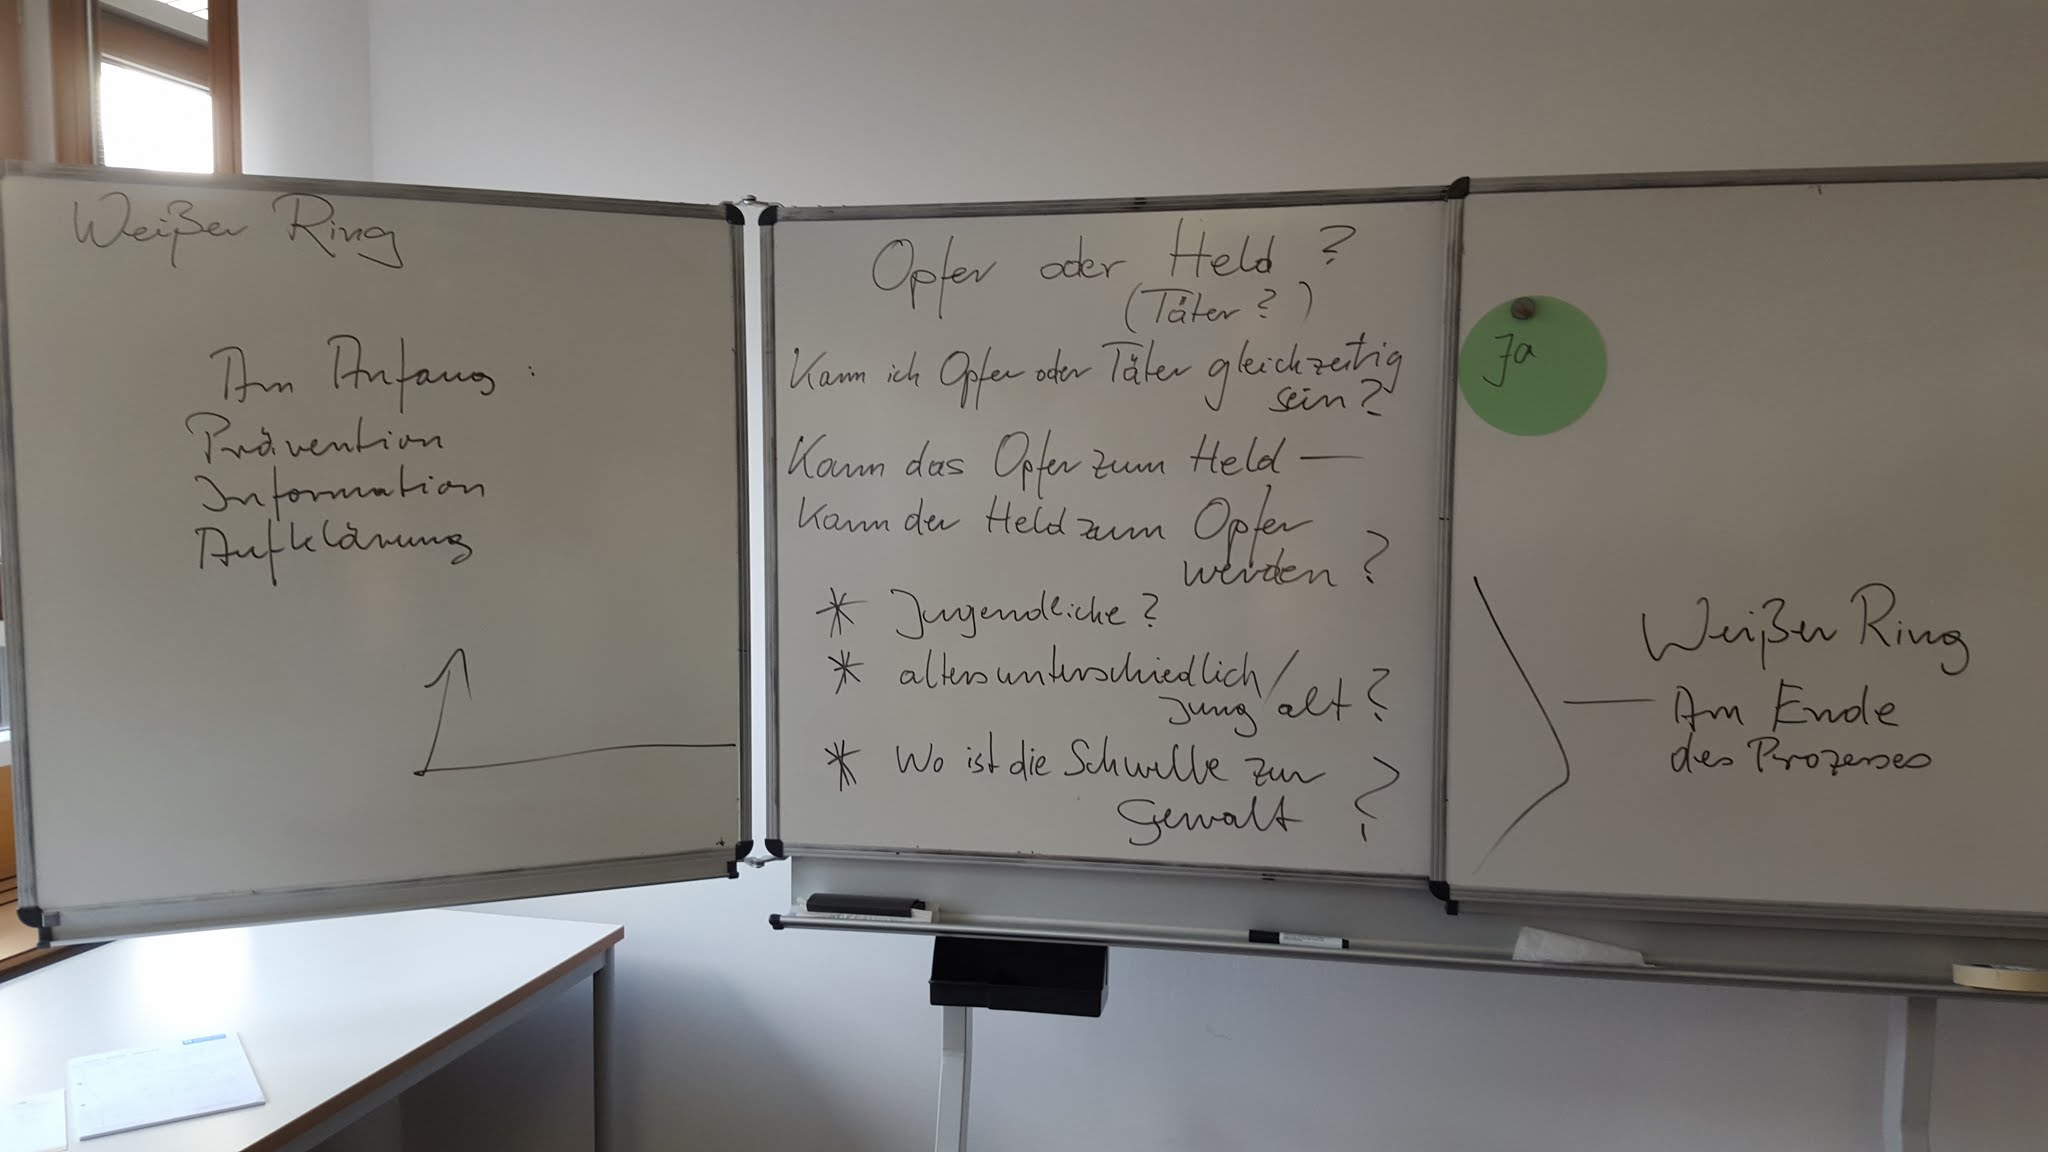 Weißer Ring
Am Anfang :
Prävention
Information
Aufklärung
Opfer oder Held ?
(Täter ? )
Kann ich Opfer oder Täter gleichzeitig
sein ?
Kann das Opfer zum Held —
Kann der Held zum Opfer
werden ?
* Jugendliche ?
* altersunterschiedlich /
jung / alt ?
* Wo ist die Schwelle zur
Gewalt ?
Ja
Weißer Ring
Am Ende
des Prozesses